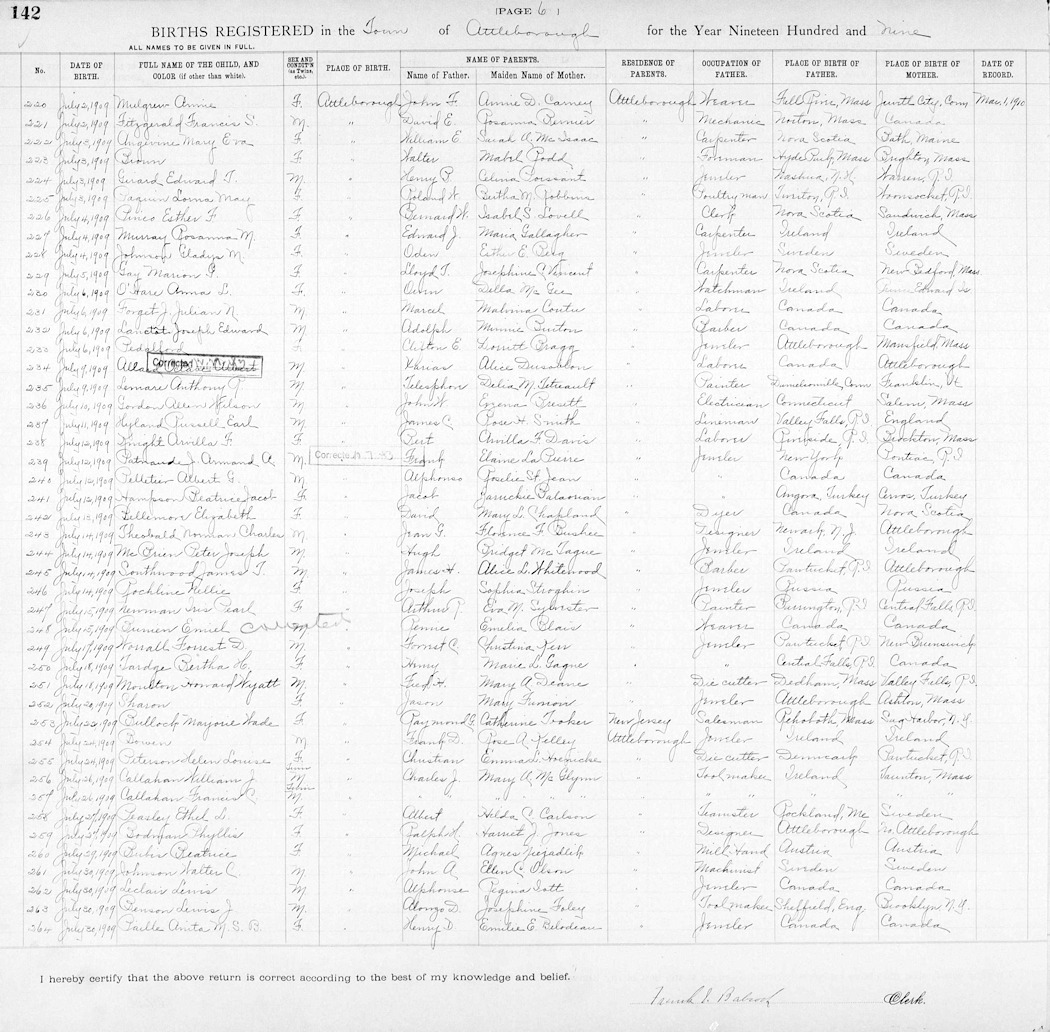 142
[PAGE 6 ]
BIRTHS REGISTERED in the Town of Attleborough for the Year Nineteen Hundred and Nine
ALL NAMES TO BE GIVEN IN FULL.
No. DATE OF BIRTH. FULL NAME OF THE CHILD, AND COLOR (if other than white). SEX AND CONDIT'N (as Twins, etc.) PLACE OF BIRTH. NAME OF PARENTS. Name of Father. Maiden Name of Mother. RESIDENCE OF PARENTS. OCCUPATION OF FATHER. PLACE OF BIRTH OF FATHER. PLACE OF BIRTH OF MOTHER. DATE OF RECORD.
220 July 2, 1909 Mulgrew Annie F. Attleborough John F. Annie D. Carney Attleborough Weaver Fall River, Mass City, Conn Mar. 1, 1910
221 July 2, 1909 Fitzgerald Francis S. M. " David E. Rosanna Bernier " Mechanic Norton, Mass Canada
222 July 3, 1909 Angevine Mary Eva F. " William E. Sarah A. McIsaac " Carpenter Nova Scotia Bath, Maine
223 July 3, 1909 Brown F. " Walter Mabel Rodd " Forman Hyde Park, Mass Brighton, Mass
224 July 3, 1909 Girard Edward T. M. " Henry P. Celina Boissant " Jeweler Nashua, N.H. Warren, R.I.
225 July 3, 1909 Paquin Lorna May F. " Roland W. Bertha M. Robbins " Poultryman R.I. Woonsocket, R.I.
226 July 4, 1909 Pineo Esther F. F. " Bernard W. Isabel S. Lovell " Clerk Nova Scotia Sandwich, Mass
227 July 4, 1909 Murray Rosanna M. F. " Edward J. Maria Gallagher " Carpenter Ireland Ireland
228 July 4, 1909 Johnson Gladys M. F. " Oden Esther E. Berg " Jeweler Sweden Sweden
229 July 5, 1909 Gay Marion G. F. " Lloyd T. Josephine C. Vincent " Carpenter Nova Scotia New Bedford, Mass
230 July 6, 1909 O'Hare Anna L. F. " Owen Della McGee " Watchman Ireland Prince Edward Is.
231 July 6, 1909 Forget J. Julian N. M. " Marcel Malvina Coutu " Laborer Canada Canada
232 July 6, 1909 Lanctot Joseph Edward M. " Adolph Minnie " Barber Canada Canada
233 July 6, 1909 F. " Clifton E. Bragg " Jeweler Attleborough Mansfield, Mass
234 July 9, 1909 Corrected M. " Alice Dusablon " Laborer Canada Attleborough
235 July 9, 1909 Lemare Anthony T. M. " Telesphor Delia M. Tetreault " Painter Danielsonville, Conn Franklin, Vt
236 July 10, 1909 Gordon Allen Wilson M. " John W. " Electrician Connecticut Salem, Mass
237 July 11, 1909 Hyland Russell Earl M. " James C. Rose H. Smith " Lineman Valley Falls, R.I. England
238 July 12, 1909 Dwight Arvilla F. F. " Bert Arvilla F. Davis " Laborer Riverside, R.I. Brockton, Mass
239 July 12, 1909 Patnaude J. Armand A. M. Corrected Frank Elaine LaPierre " Jeweler New York Pontiac, R.I.
240 July 12, 1909 Pelletier Albert G. M. " Alphonse Roselie St Jean " " Canada Canada
241 July 12, 1909 Hampson Beatrice Jacob F. " Jacob " " Angora, Turkey Turkey
242 July 13, 1909 Pellemon Elizabeth F. " David Mary L. Chapland " Dyer Canada Nova Scotia
243 July 14, 1909 Theobald Norman Charles M. " Jean G. Florence F. Bushee " Designer Newark, N.J. Attleborough
244 July 14, 1909 McBrien Peter Joseph M. " Hugh Bridget McTague " Jeweler Ireland Ireland
245 July 14, 1909 Southwood James T. M. " James H. Alice L. Whitewood " Barber Pawtucket, R.I. Attleborough
246 July 14, 1909 Rockline Nellie F. " Joseph Sophia " Jeweler Russia Russia
247 July 15, 1909 Newman Iris Pearl F. " Arthur P. Eva M. Sylvester " Painter R.I. Central Falls, R.I.
248 July 15, 1909 Emiel corrected M. " Emelia Blair " Weaver Canada Canada
249 July 17, 1909 Worrall Forrest D. M. " Forrest C. Christina Kerr " Jeweler Pawtucket, R.I. New Brunswick
250 July 18, 1909 Tardge Bertha H. F. " Henry Marie L. Gagne " " Central Falls, R.I. Canada
251 July 18, 1909 Moulton Howard Wyatt M. " Fred H. Mary A. Deane " Die cutter Dedham, Mass Valley Falls, R.I.
252 July 20, 1909 Sharon F. " Jason Mary Furson " Jeweler Attleborough Ashton, Mass
253 July 22, 1909 Bullock Marjorie Wade F. " Raymond G. Catherine Tooker New Jersey Salesman Rehoboth, Mass Sag Harbor, N.Y.
254 July 24, 1909 Bowen M. " Frank D. Rose A. Kelley Attleborough Jeweler Ireland Ireland
255 July 24, 1909 Peterson Helen Louise F. " Christian Emma L. " Die cutter Denmark Pawtucket, R.I.
256 July 26, 1909 Callahan William J. Twin M. " Charles J. Mary A. McGlynn " Tool maker Ireland Taunton, Mass
257 July 26, 1909 Callahan Francis C. Twin M. " " " " " " "
258 July 27, 1909 Feasley Ethel L. F. " Albert Hilda C. Carlson " Teamster Rockland, Me Sweden
259 July 27, 1909 Bodman Phyllis F. " Ralph H. Harriet J. Jones " Designer Attleborough No. Attleborough
260 July 29, 1909 Beatrice F. " Michael Agnes " Mill Hand Austria Austria
261 July 30, 1909 Johnson Walter C. M. " John A. Ellen C. Olson " Machinist Sweden Sweden
262 July 30, 1909 Leclair Lewis M. " Alphonse Regina Tatt " Jeweler Canada Canada
263 July 30, 1909 Benson Lewis J. M. " Alonzo D. Josephine Foley " Tool maker Sheffield, Eng. Brooklyn, N.Y.
264 July 30, 1909 Taille Anita M. S. B. F. " Henry D. Emilie E. Belodeau " Jeweler Canada Canada
I hereby certify that the above return is correct according to the best of my knowledge and belief.
Frank I. Babcock Clerk.